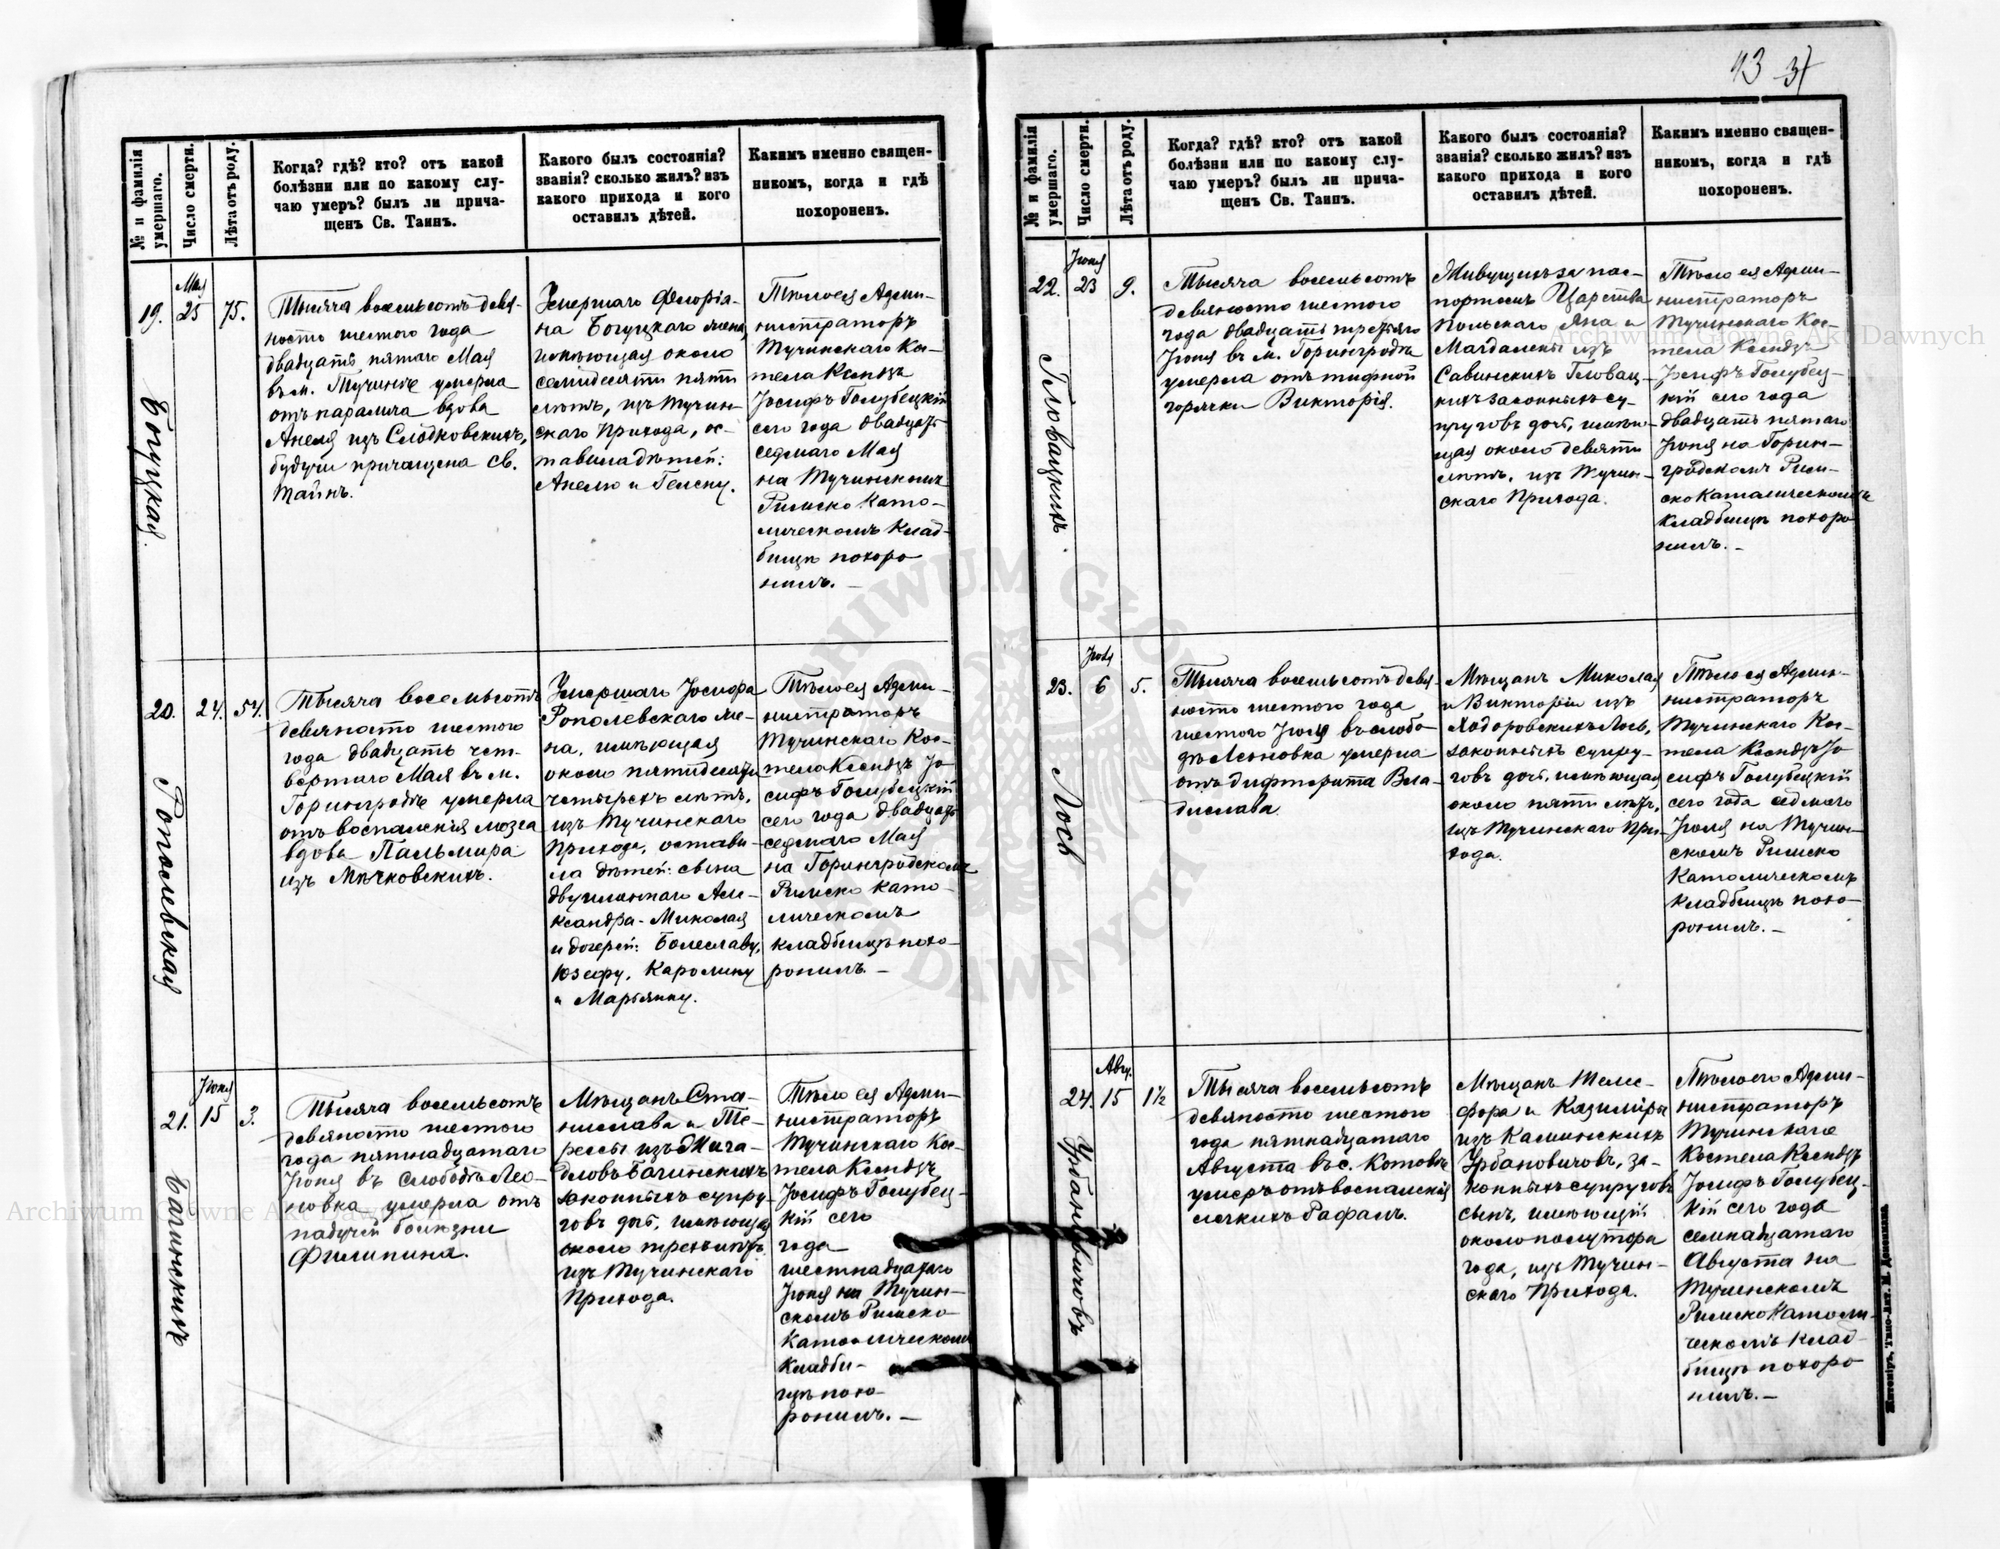 13 31
№ и фамилія умершаго.
Число смерти.
Лѣта отъ роду.
Когда? гдѣ? кто? отъ какой
болѣзни или по какому слу-
чаю умеръ? былъ ли прича-
щенъ Св. Таинъ.
Какого былъ состоянія?
званія? сколько жилъ? изъ
какого прихода и кого
оставилъ дѣтей.
Какимъ именно священ-
никомъ, когда и гдѣ
похороненъ.
19.
Богуцкая.
Мая
25
75.
Тысяча восемьсотъ девя-
носто шестого года
двадцать пятаго Мая
въ м. Тучинѣ умерла
отъ паралича вдова
Анеля изъ Слодковскихъ,
будучи причащена св.
Тайнъ.
Умершаго Флоріа-
на Богуцкаго жена,
имѣющая около
семидесяти пяти
лѣтъ, изъ Тучин-
скаго Прихода, ос-
тавила дѣтей:
Анелю и Гелену.
Тѣло ея Адми-
нистраторъ
Тучинскаго Кос-
тела Ксендзъ
Іосифъ Голубецкій
сего года двадцать
седмаго Мая
на Тучинскомъ
Римско Като-
лическомъ Клад-
бищѣ похоро
нилъ. —
20.
Рополевская
24.
54.
Тысяча восемьсотъ
девяносто шестого
года двадцать чет-
вертаго Мая въ м.
Горинградѣ умерла
отъ воспаленія мозга
вдова Пальмира
изъ Мѣчковскихъ.
Умершаго Іосифа
Рополевскаго же-
на, имѣющая
около пятидесяти
четырехъ лѣтъ,
изъ Тучинскаго
Прихода, остави-
ла дѣтей: сына
двуименнаго Але-
ксандра-Николая
и дочерей: Болеславу,
Юзефу, Каролину
и Марьянну.
Тѣло ея Адми-
нистраторъ
Тучинскаго Кос-
тела Ксендзъ Іо-
сифъ Голубецкій
сего года двадцать
седмаго Мая
на Горинградскомъ
Римско Като-
лическомъ
кладбищѣ похо-
ронилъ. —
21.
Багинскихъ
Іюня
15
3.
Тысяча восемьсотъ
девяносто шестого
года пятнадцатаго
Іюня въ слободѣ Лео-
новка умерла отъ
падучей болѣзни
Филипина.
Мѣщанъ Ста-
нислава и Те-
рессы изъ
Багинскихъ
законныхъ супру-
говъ дочь, имѣющая
около трехъ лѣтъ,
изъ Тучинскаго
Прихода.
Тѣло ея Адми-
нистраторъ
Тучинскаго Кос-
тела Ксендзъ
Іосифъ Голубец-
кій сего
года
шестнадцатаго
Іюня на Тучин-
скомъ Римско
Католическомъ
Кладби-
щѣ похо-
ронилъ. —
№ и фамилія умершаго.
Число смерти.
Лѣта отъ роду.
Когда? гдѣ? кто? отъ какой
болѣзни или по какому слу-
чаю умеръ? былъ ли прича-
щенъ Св. Таинъ.
Какого былъ состоянія?
званія? сколько жилъ? изъ
какого прихода и кого
оставилъ дѣтей.
Какимъ именно священ-
никомъ, когда и гдѣ
похороненъ.
22.
Гловацкихъ.
Іюня
23
9.
Тысяча восемьсотъ
девяносто шестого
года двадцать третьяго
Іюня въ м. Горинградѣ
умерла отъ тифной
горячки Викторія.
Живущихъ за пас-
портомъ Царства
Польскаго Яна и
Магдалены изъ
Савинскихъ Гловац-
кихъ законныхъ су-
пруговъ дочь, имѣю-
щая около девяти
лѣтъ, изъ Тучин-
скаго Прихода.
Тѣло ея Адми-
нистраторъ
Тучинскаго Кос-
тела Ксендзъ
Іосифъ Голубец-
кій сего года
двадцать пятаго
Іюня на Горин-
градскомъ Рим-
ско Католическомъ
кладбищѣ похоро
нилъ. —
23.
Лось
Іюля
6
5.
Тысяча восемьсотъ девя-
носто шестого года
шестого Іюля въ слобо-
дѣ Леоновка умерла
отъ дифтерита Вла-
дислава.
Мѣщанъ Миколая
и Викторіи изъ
Ходоровскихъ Лось,
законныхъ супру-
говъ дочь, имѣющая
около пяти лѣтъ,
изъ Тучинскаго При-
хода.
Тѣло ея Адми-
нистраторъ
Тучинскаго Кос-
тела Ксендзъ Іо-
сифъ Голубецкій
сего года седмаго
Іюля на Тучин-
скомъ Римско
Католическомъ
кладбищѣ похо-
ронилъ. —
24.
Урбановичовъ
Авгу.
15
1½
Тысяча восемьсотъ
девяносто шестого
года пятнадцатаго
Августа въ с. Котовѣ
умеръ отъ воспаленія
легкихъ Рафалъ.
Мѣщанъ Теле-
сфора и Казиміры
изъ Калинскихъ
Урбановичовъ, за-
конныхъ супруговъ
сынъ, имѣющій
около полутора
года, изъ Тучин-
скаго Прихода.
Тѣло его Адми-
нистраторъ
Тучинскаго
Костела Ксендзъ
Іосифъ Голубец-
кій сего года
семнадцатаго
Августа на
Тучинскомъ
Римско Католи-
ческомъ Клад-
бищѣ похоро
нилъ. —
Житоміръ, Типо-Лит. М. Дененмана
Archiwum Główne Akt Dawnych
Archiwum Główne Akt Dawnych
ARCHIWUM GŁÓWNE AKT DAWNYCH